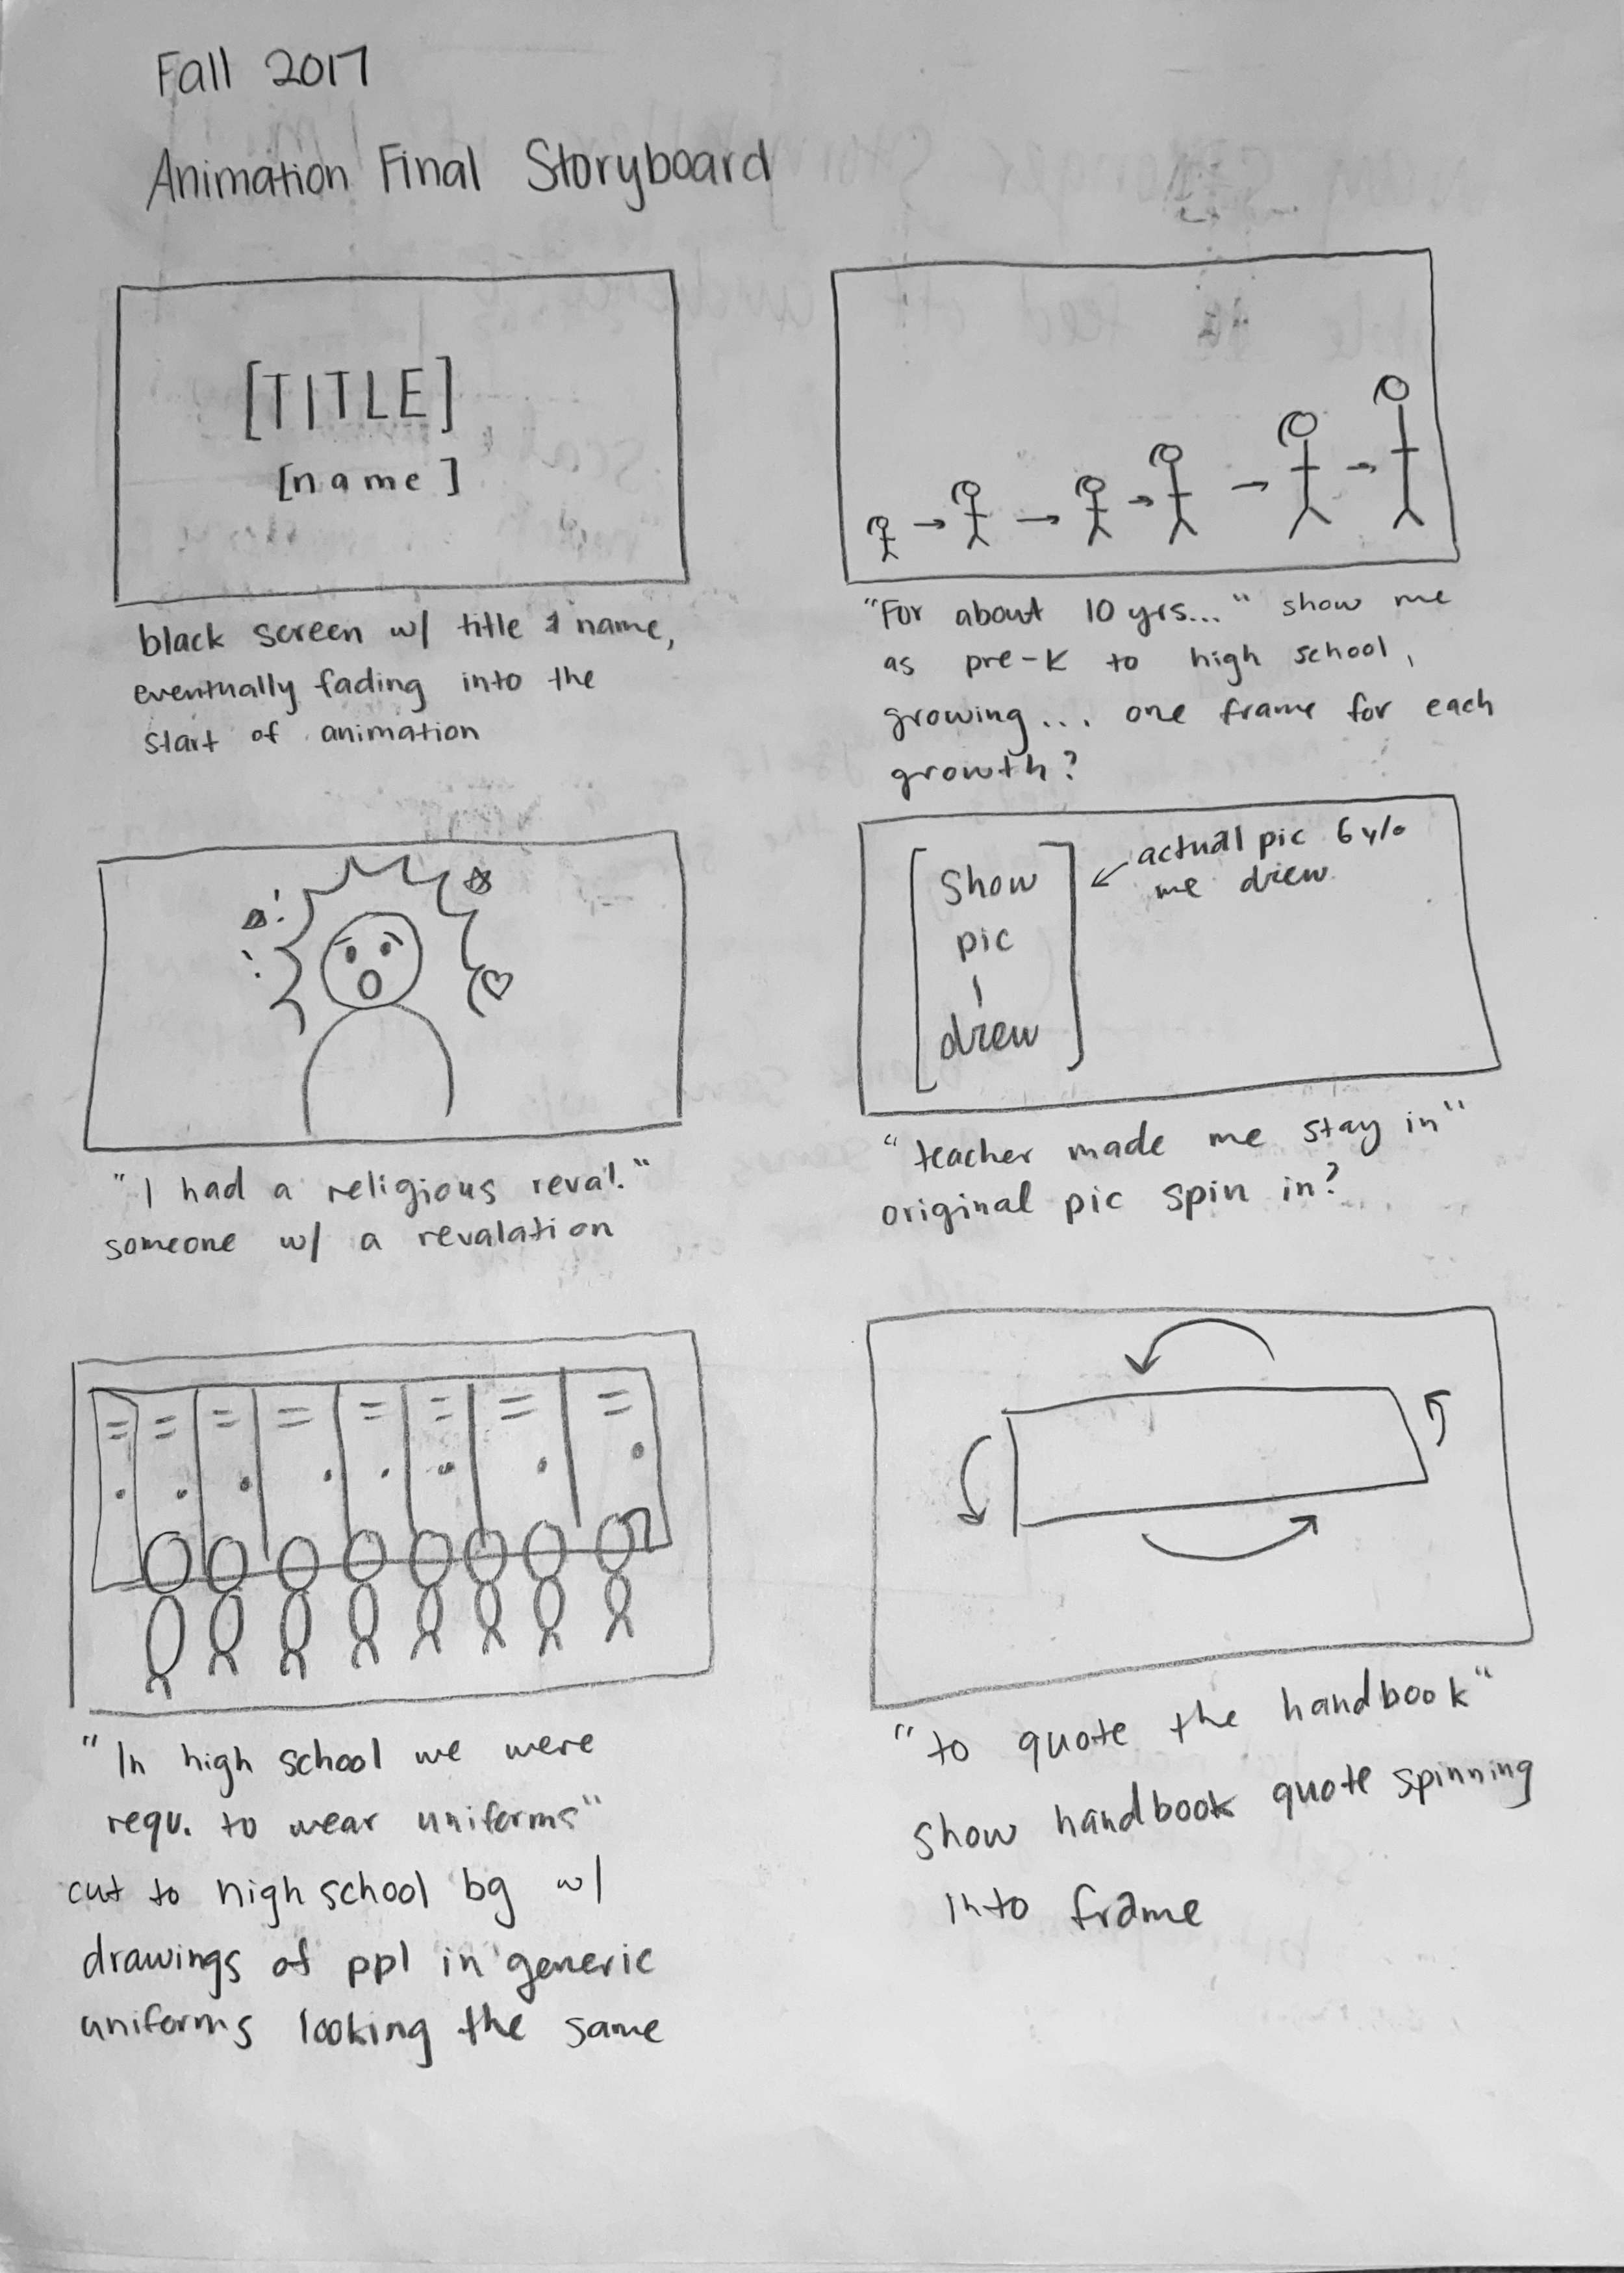 Fall 2017
Animation Final Storyboard
[TITLE]
[name]
black screen w/ title & name,
eventually fading into the
start of animation
"For about 10 yrs..." show me
as pre-K to high school,
growing... one frame for each
growth?
"I had a religious reval."
someone w/ a revalation
[Show
pic
I
drew]
actual pic 6 y/o
me drew
"teacher made me stay in"
original pic spin in?
"In high school we were
requ. to wear uniforms"
cut to high school bg w/
drawings of ppl in generic
uniforms looking the same
"to quote the handbook"
show handbook quote spinning
into frame